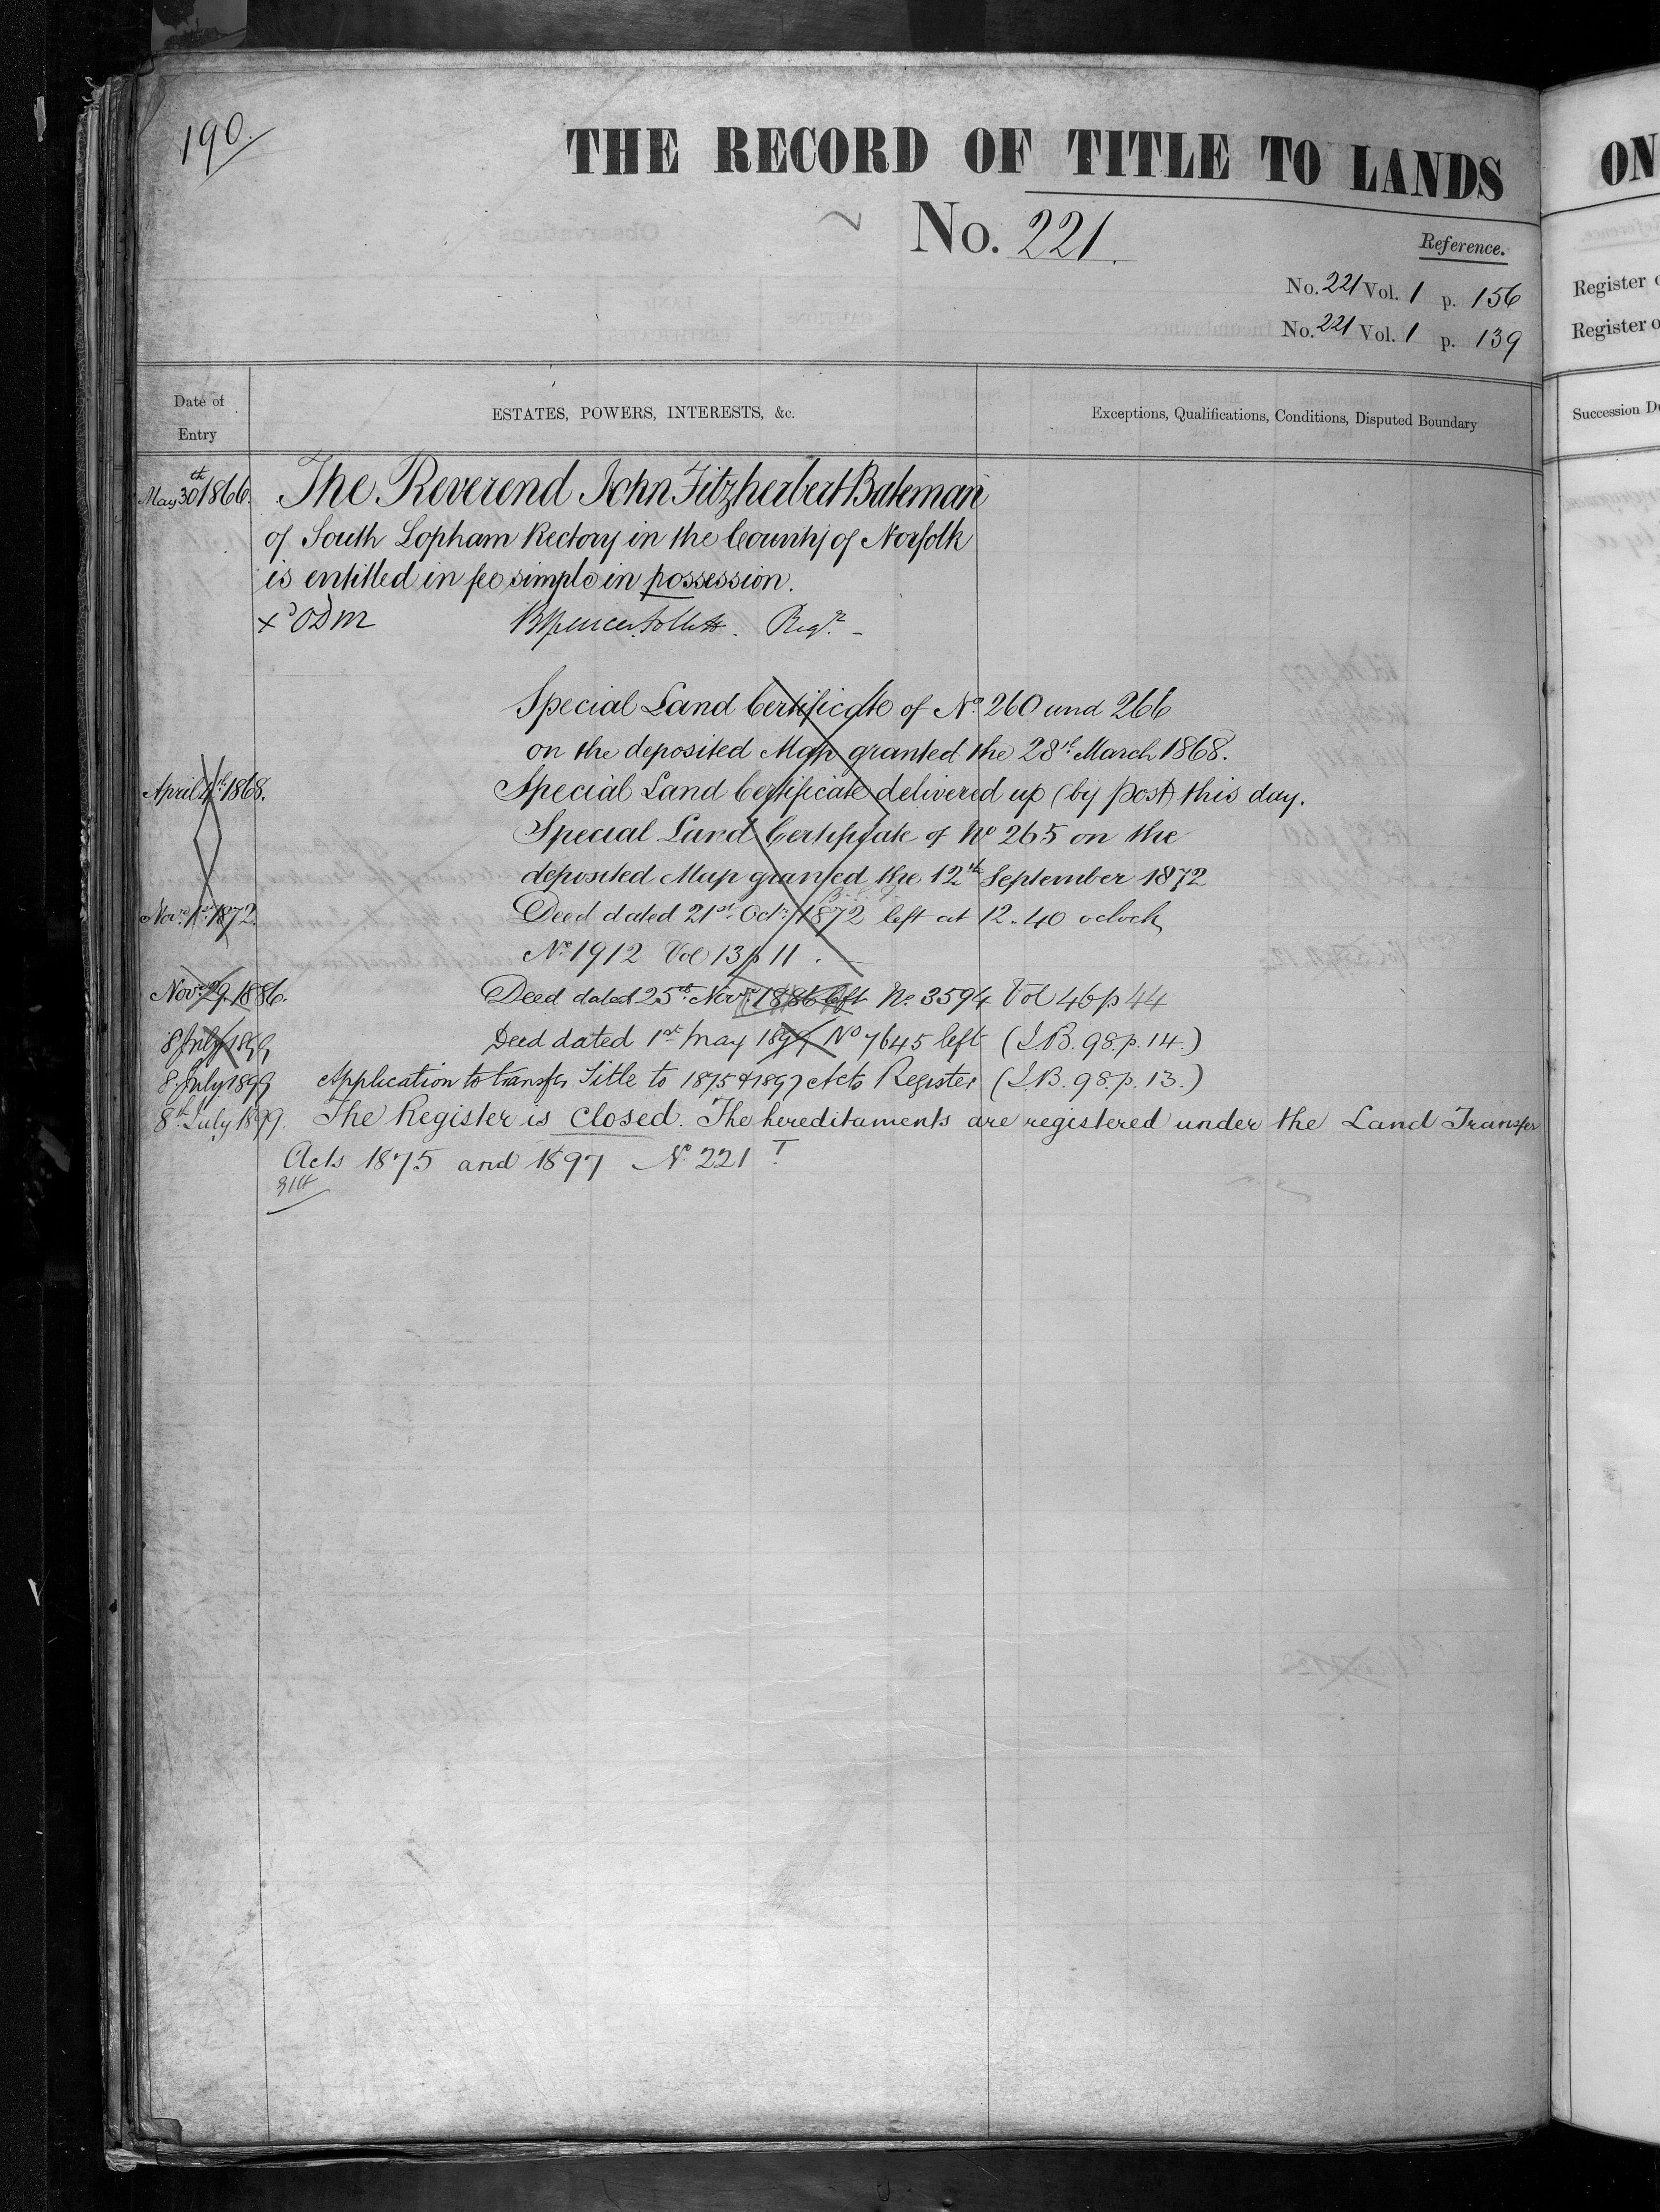 190.
THE RECORD OF TITLE TO LANDS
No. 221.
Reference.
No. 221 Vol. 1 p. 156
No. 221 Vol. 1 p. 139
Date of Entry
ESTATES, POWERS, INTERESTS, &c.
Exceptions, Qualifications, Conditions, Disputed Boundary
May 30th 1866. The Reverend John Fitzherbert Bateman
of South Lopham Rectory in the County of Norfolk
is entitled in fee simple in possession.
Regr.
Special Land Certificate of No. 260 and 266
on the deposited Map granted the 28th March 1868.
April 4th 1868. Special Land Certificate delivered up (by post) this day.
Special Land Certificate of No 265 on the
deposited Map granted the 12th September 1872
Novr. 1st 1872. Deed dated 21st Octr. 1872 left at 12.40 oclock
No. 1912 Vol 13 p 11.
Novr. 29. 1886. Deed dated 25th Novr. 1886 left No. 3594 Vol 46 p 44
8 July 1899 Deed dated 1st May 1899 No 7645 left (I.B. 98. p. 14.)
8 July 1899 Application to transfer Title to 1875 & 1897 Acts Register (I.B. 98. p. 13.)
8th July 1899. The Register is closed. The hereditaments are registered under the Land Transfer
Acts 1875 and 1897 No. 221 T
ON
Register
Register o
Succession D